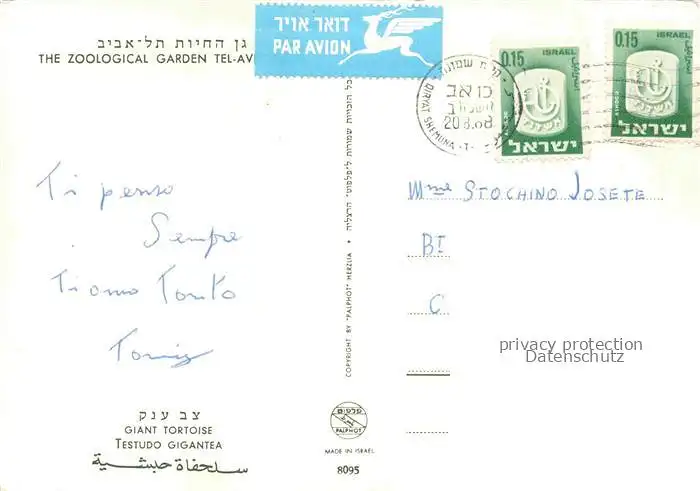 גן החיות תל-אביב
THE ZOOLOGICAL GARDEN TEL-AV
דואר אויר
PAR AVION
קרית שמונה
כו אב
20.8.68
QIRYAT SHEMONA
0.15 ISRAEL
אשדוד
ישראל
0.15 ISRAEL
אשדוד
ישראל
Ti penso
Sempre
Ti amo Tanto
Mme STOCHINO JOSETE
BT
C
privacy protection
Datenschutz
כל הזכויות שמורות ל"פלפוט" הרצליה
COPYRIGHT BY "PALPHOT" HERZLIA
פלפוט
PALPHOT
MADE IN ISRAEL
8095
צב ענק
GIANT TORTOISE
TESTUDO GIGANTEA
سلحفاة حبشية